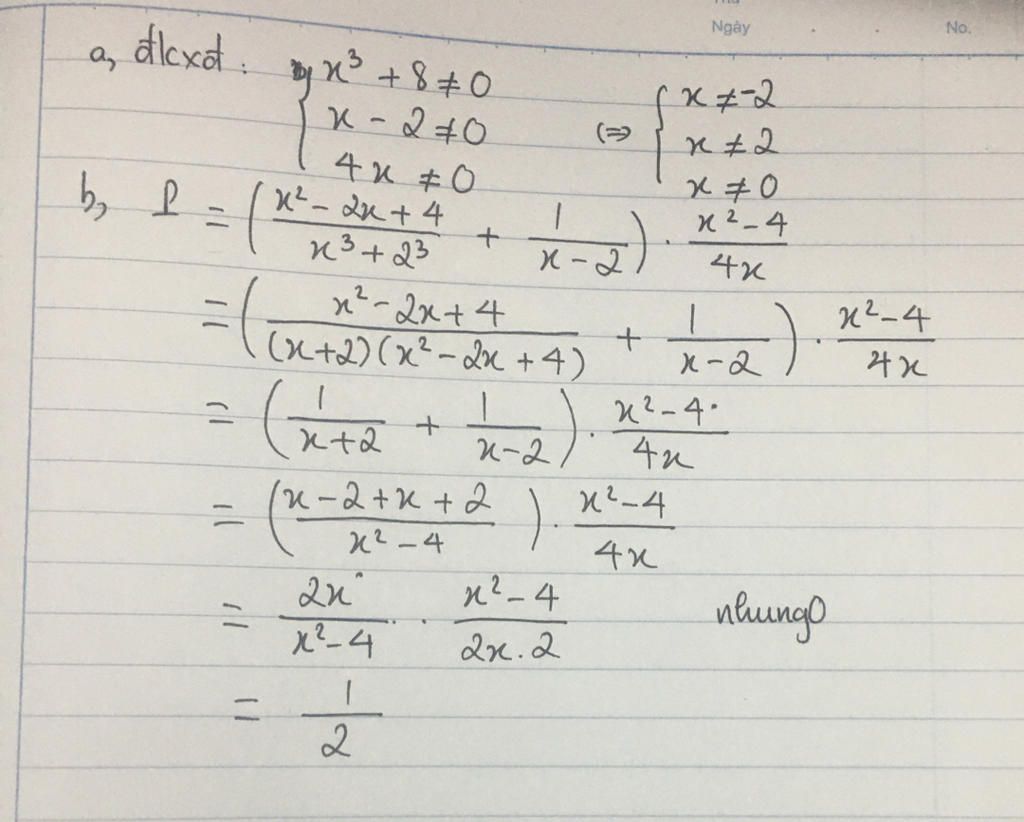 Thứ
Ngày No.
a, đkxđ: { x³ + 8 ≠ 0
x - 2 ≠ 0 <=> { x ≠ -2
4x ≠ 0 x ≠ 2
x ≠ 0
b, P = ( (x² - 2x + 4)/(x³ + 2³) + 1/(x - 2) ) . (x² - 4)/(4x)
= ( (x² - 2x + 4)/((x+2)(x² - 2x + 4)) + 1/(x - 2) ) . (x² - 4)/(4x)
= ( 1/(x+2) + 1/(x-2) ) . (x² - 4)/(4x)
= ( (x - 2 + x + 2)/(x² - 4) ) . (x² - 4)/(4x)
= 2x/(x² - 4) . (x² - 4)/(2x . 2) nhung0
= 1/2